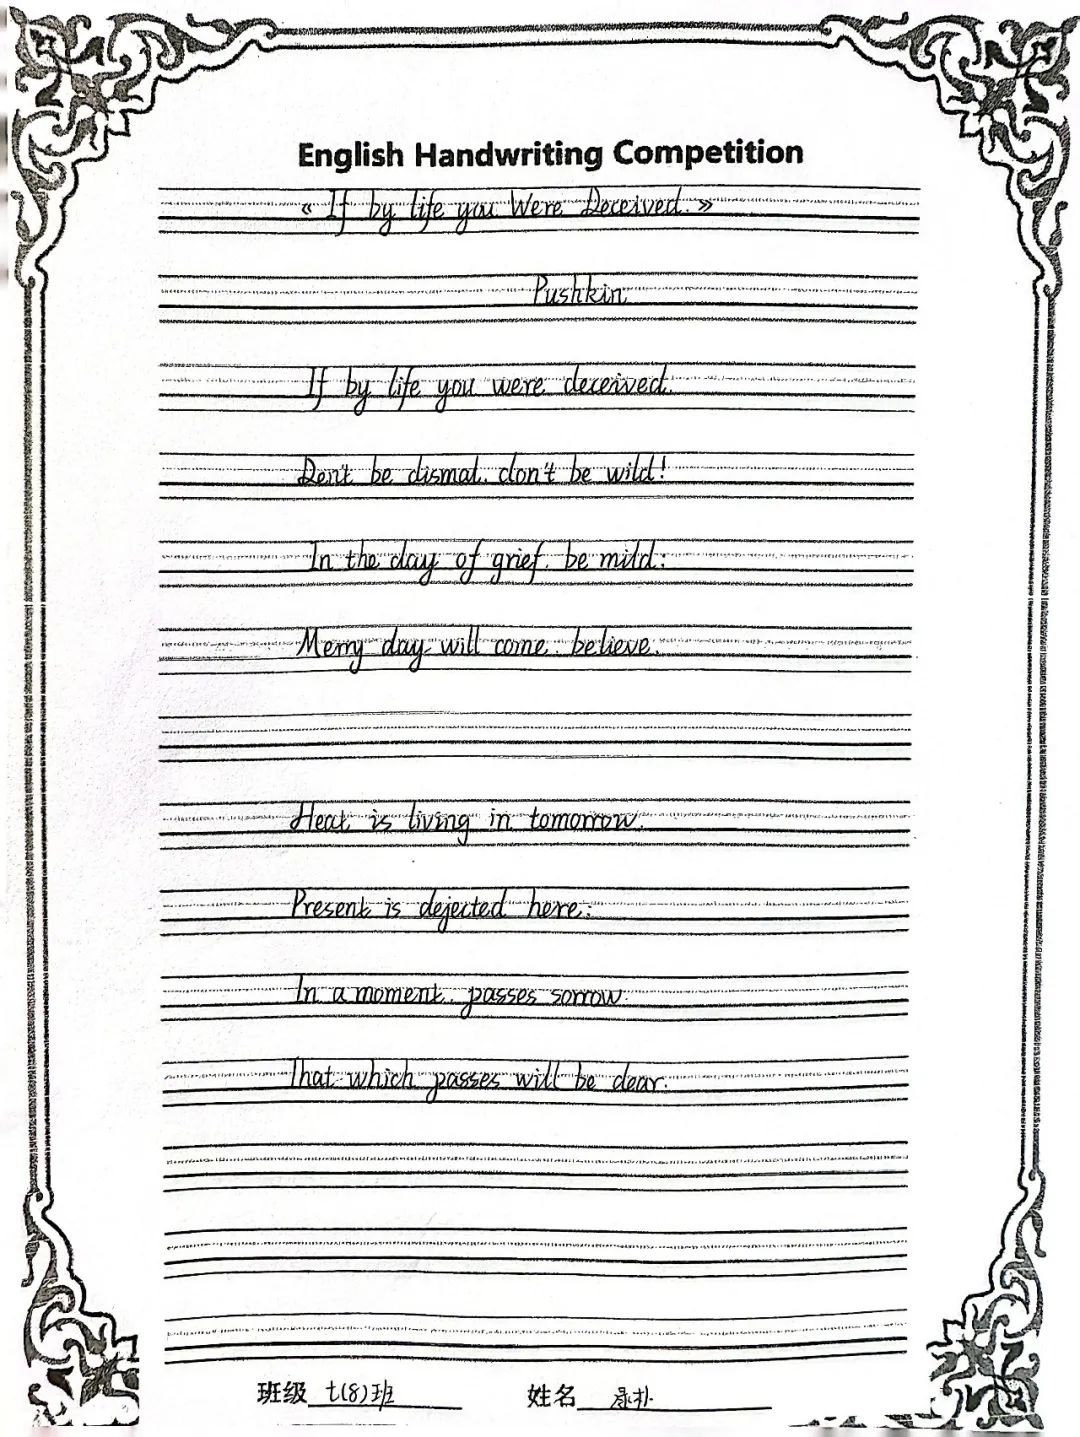 English Handwriting Competition
《If by life you Were Deceived.》
Pushkin
If by life you were deceived.
Don't be dismal. don't be wild!
In the day of grief. be mild:
Merry day will come. believe.
Heat is living in tomorrow.
Present is dejected here:
In a moment. passes sorrow.
That which passes will be dear.
班级 七(8)班 姓名